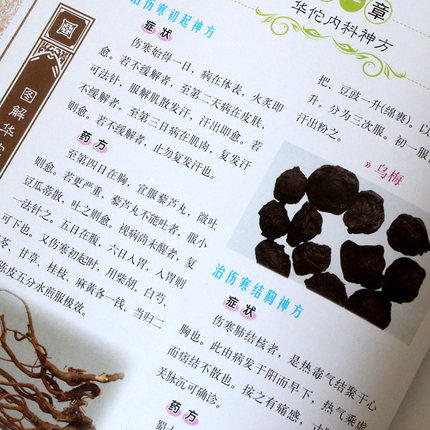 章
华佗内科神方
图解华佗
治伤寒初起神方
症状
伤寒始得一日，病在体表，火炙即
愈。若不缓解者，至第二天病在皮肤，
可法针，服解肌散发汗，汗出即愈。若
不缓解者，至第三日病在肌肉，复发汗
则愈。若不缓解者，止勿复发汗也。
药方
至第四日在胸，宜服藜芦丸，微吐
则愈。若更严重，藜芦丸不能吐者，服小
豆瓜蒂散，吐之则愈。视病尚未醒者，复
一法针之。五日在腹，六日入胃，入胃则
可下也。又伤寒初起时，用柴胡、白芍、
苓、甘草、桂枝、麻黄各一钱，当归二
陈皮五分水煎服极效。
把，豆豉一升(绵裹)。以
升，分为三次服。初一服
汗出粉之。
»乌梅
治伤寒结胸神方
症状
伤寒肺结核者，是热毒气结聚于心
胸也。此由病发于阳而早下，热气乘虚
而痞结不散也。按之有痛感，寸
关脉沉可确诊。
药方